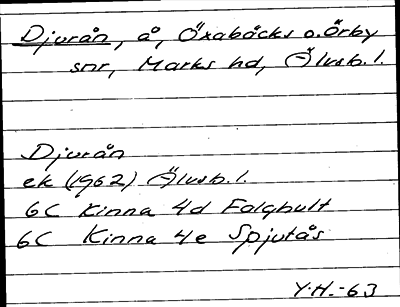 Djurån, å, Öxabäcks o. Örby
snr, Marks hd, Älvsb. l.
Djurån
ek (1962) Älvsb. l.
6C Kinna 4d Falghult
6C Kinna 4e Spjutås
Y.H.-63